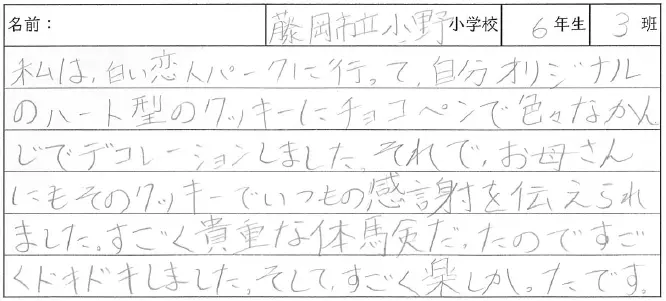 名前： 藤岡市立小野小学校 6年生 3班
私は、白い恋人パークに行って、自分オリジナル
のハート型のクッキーにチョコペンで色々なかん
じでデコレーションしました。それで、お母さん
にもそのクッキーでいつもの感謝を伝えられ
ました。すごく貴重な体験だったのですご
くドキドキしました。そして、すごく楽しかったです。